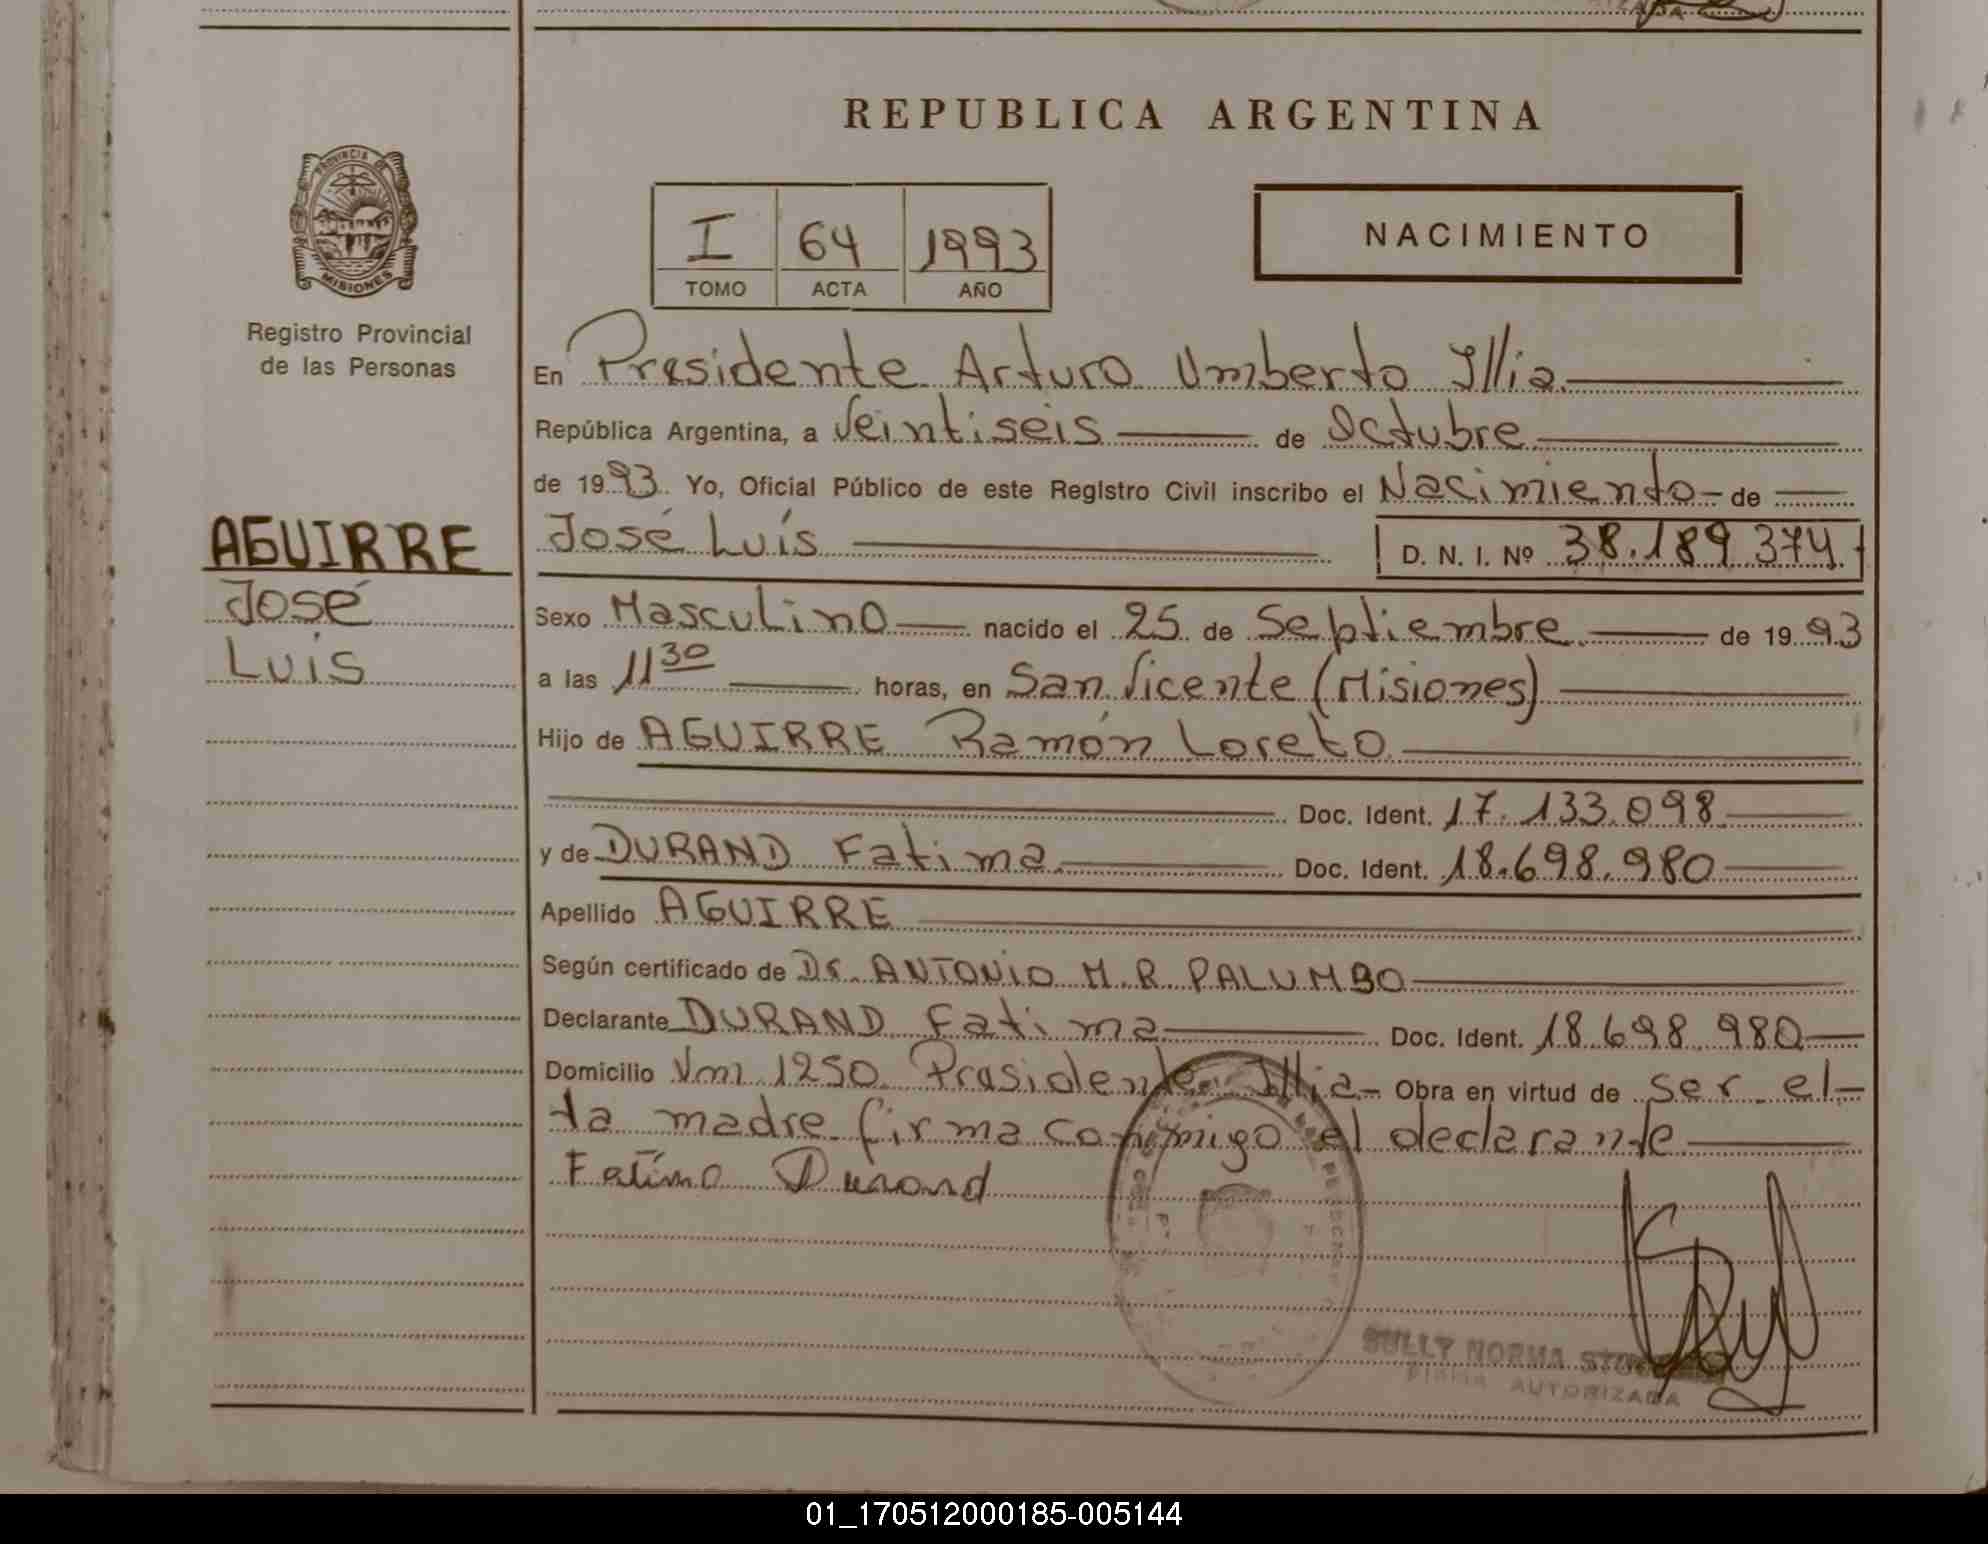 REPUBLICA ARGENTINA
PROVINCIA DE
MISIONES
Registro Provincial
de las Personas
I 64 1993
TOMO ACTA AÑO
NACIMIENTO
En Presidente Arturo Umberto Illia
República Argentina, a Veintiseis de Octubre
de 1993 Yo, Oficial Público de este Registro Civil inscribo el Nacimiento de
José Luís D. N. I. Nº 38.189.374
AGUIRRE
José
Luis
Sexo Masculino nacido el 25 de Septiembre de 1993
a las 11 30 horas, en San Vicente (Misiones)
Hijo de AGUIRRE Ramón Loreto
Doc. Ident. 17.133.098
y de DURAND Fatima Doc. Ident. 18.698.980
Apellido AGUIRRE
Según certificado de Dr. ANTONIO M.R. PALUMBO
Declarante DURAND Fatima Doc. Ident. 18.698.980
Domicilio Vm 1250 Presidente Illia- Obra en virtud de ser el-
la madre firma conmigo el declarante
Fatima Durand
SULLY NORMA
FIRMA AUTORIZADA
01_170512000185-005144